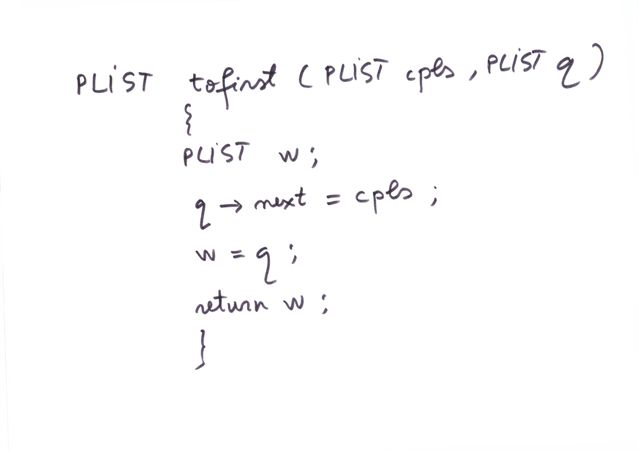 PLIST tofirst ( PLIST cpls , PLIST q )
{
PLIST w ;
q → next = cpls ;
w = q ;
return w ;
}